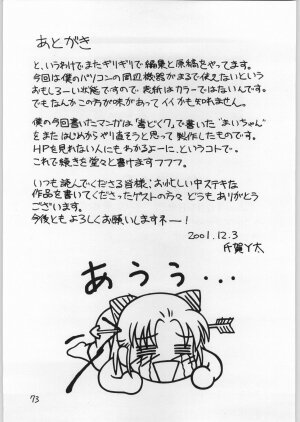 あとがき
と、いうわけでまたギリギリで編集と原稿をやってます。
今回は僕のパソコンの周辺機器がまるで使えないという
おもしろーい状態ですので、表紙はカラーではないんです。
でもなんかこの方が味があってイイかも知れません。
僕の今回書いたマンガは「毒どく7」で書いた“まいちゃん”
をまたはじめからやり直そうと思って製作したものです。
HPを見ない人にもわかるよーに、というコトで。
これで続きを堂々と書けますフフフ。
いつも読んでくださる皆様、お忙しい中ステキな
作品を書いてくださったゲストの方々どうもありがとう
ございます。
今後ともよろしくお願いしますネー!
2001.12.3
あうぅ・・・
73